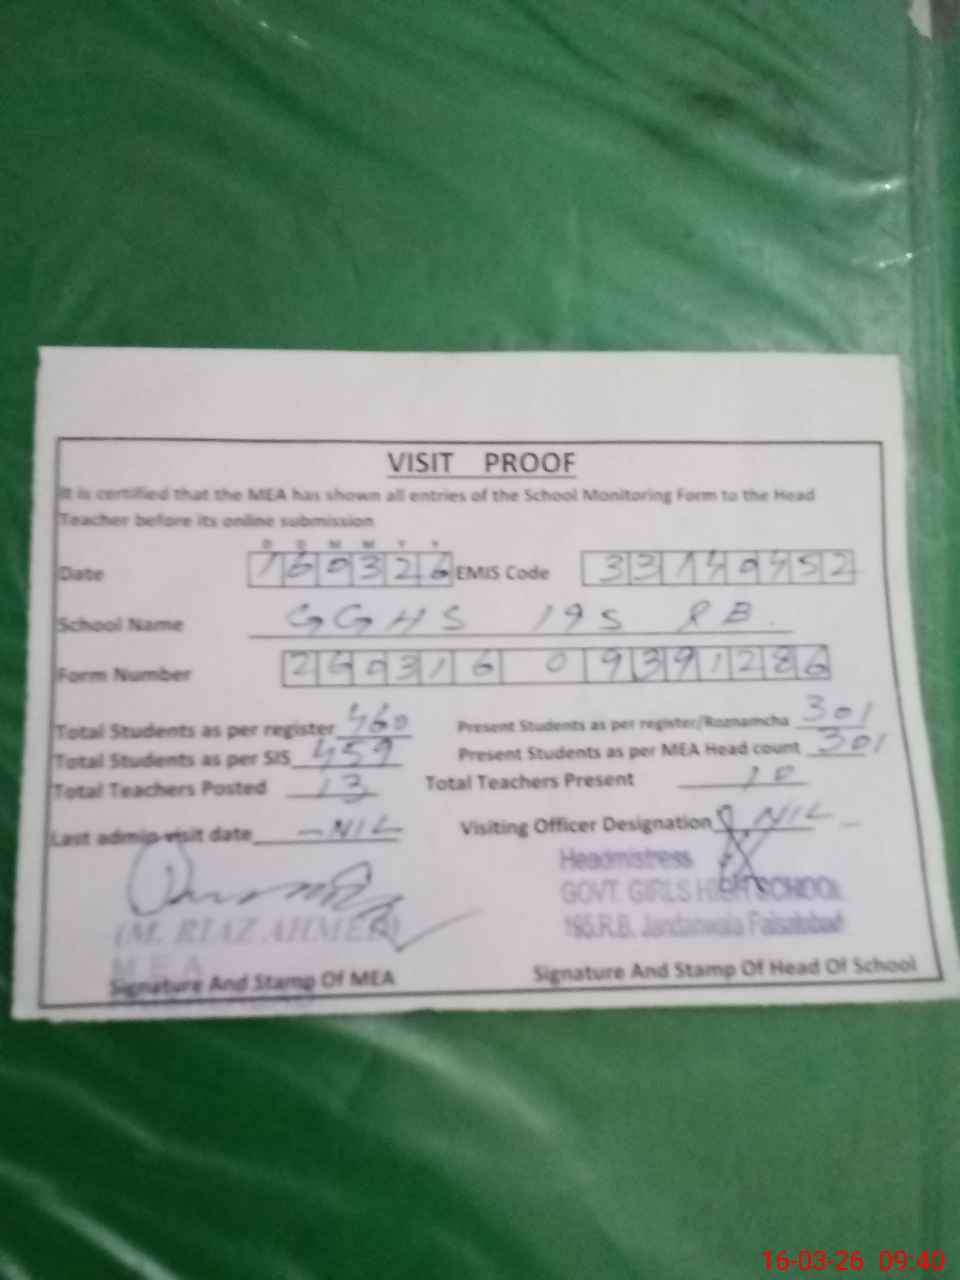 VISIT PROOF
It is certified that the MEA has shown all entries of the School Monitoring Form to the Head
Teacher before its online submission
D D M M Y Y
Date 160326 EMIS Code 33140452
School Name GGHS 195 RB.
Form Number 260316 09391286
Total Students as per register 460 Present Students as per register/Roznamcha 301
Total Students as per SIS 459 Present Students as per MEA Head count 301
Total Teachers Posted 13 Total Teachers Present 10
Last admin visit date - NIL Visiting Officer Designation NIL -
Headmistress
GOVT. GIRLS HIGH SCHOOL
195.R.B. Jandanwala Faisalabad
(M. RIAZ AHMED)
MEA
Signature And Stamp Of MEA Signature And Stamp Of Head Of School
16-03-26 09:40